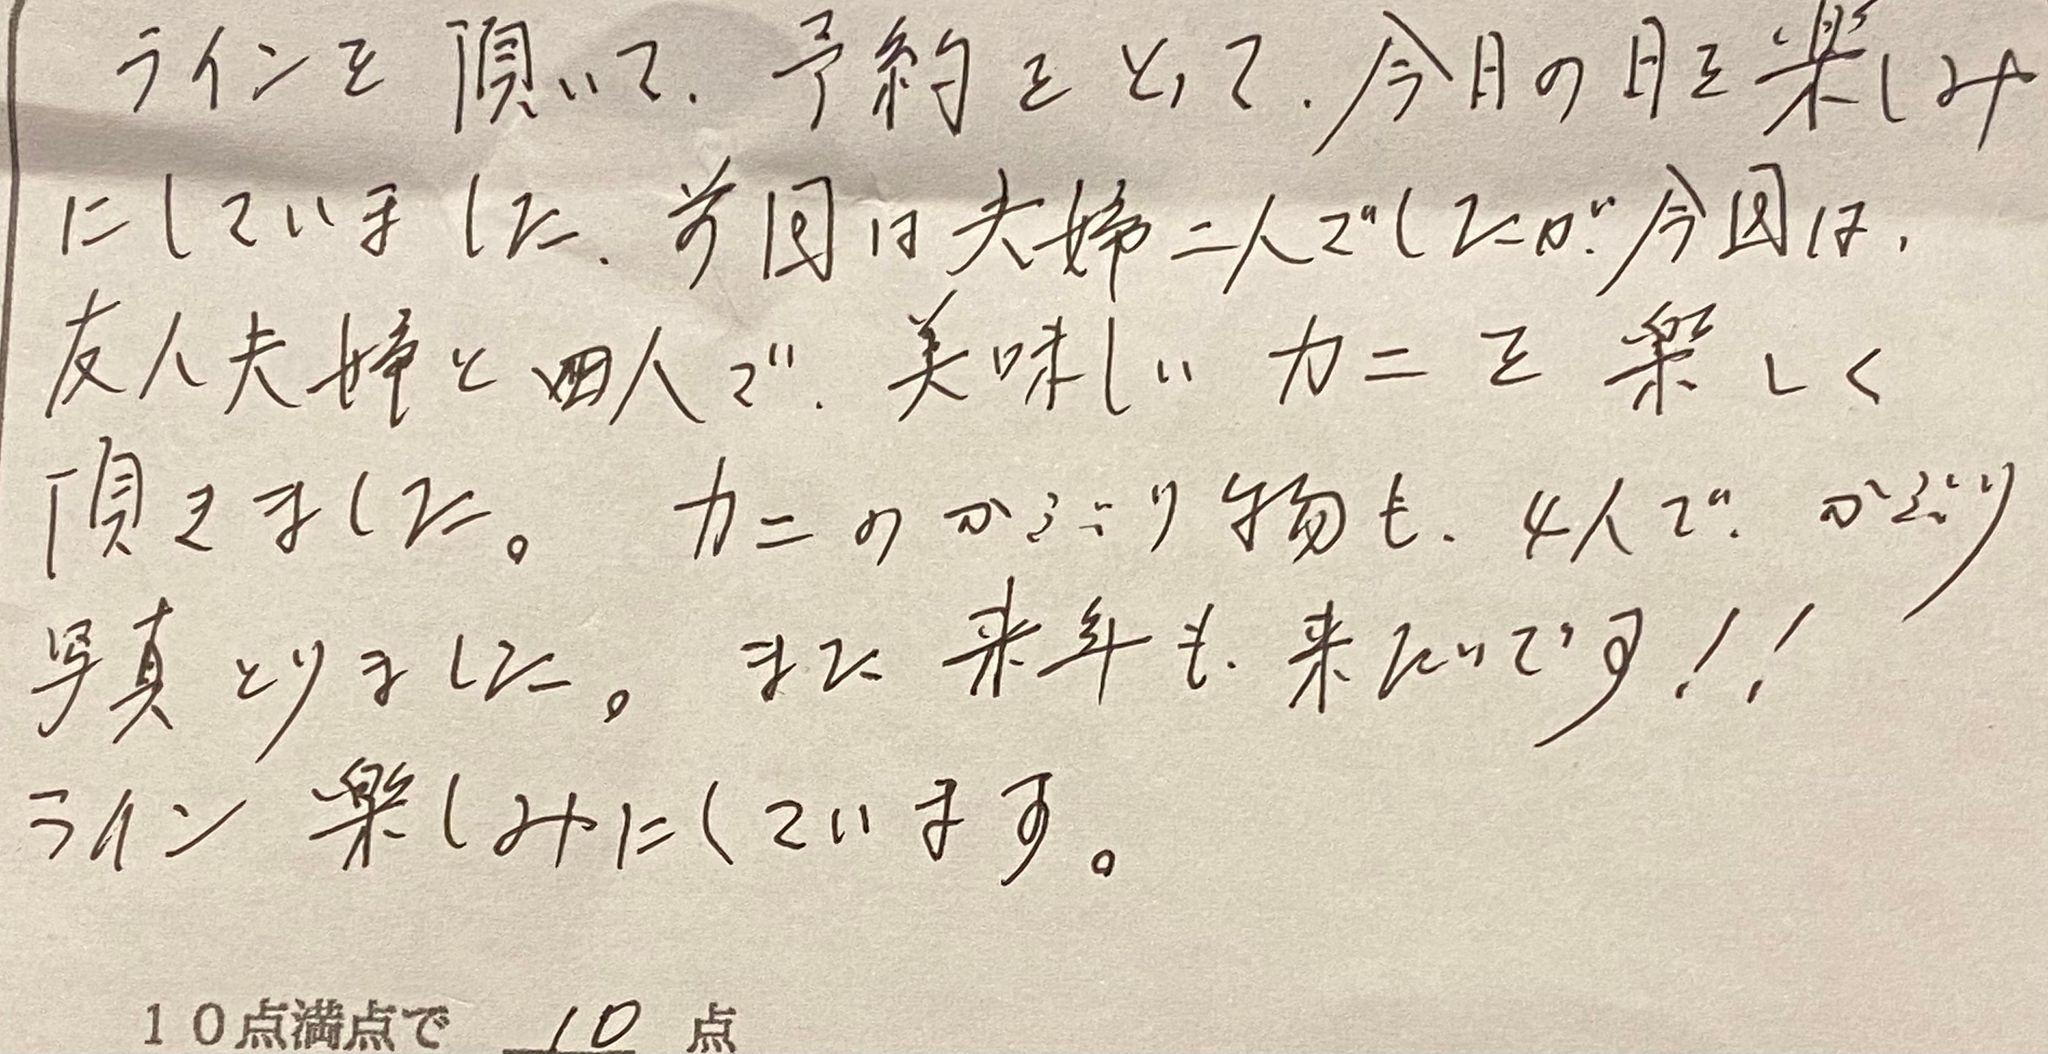 ラインを頂いて、予約をとって、今日の日を楽しみ
にしていました、前回は夫婦二人でしたが、今回は、
友人夫婦と四人で、美味しいカニを楽しく
頂きました。カニのかぶり物も、4人で、かぶり
写真とりました。また来年も、来たいです!!
ライン楽しみにしています。
10点満点で 10 点